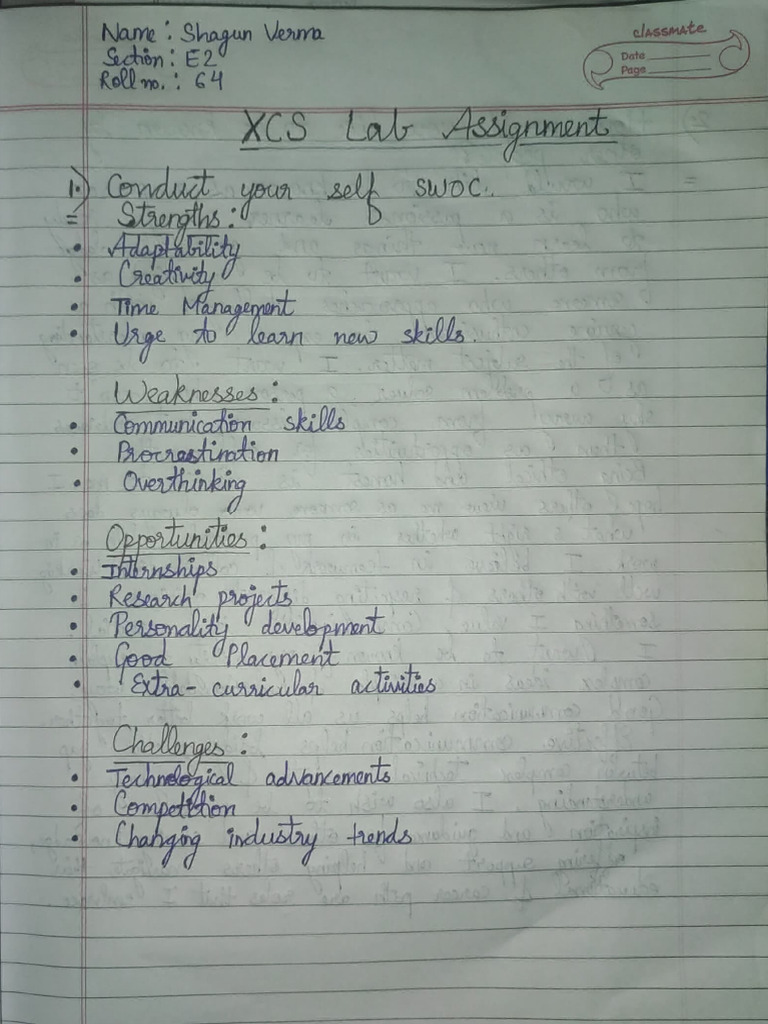 Name : Shagun Verma
Section : E2
Roll no. : 64
classmate
Date
Page
XCS Lab Assignment
1.) Conduct your self SWOC.
= Strengths :
• Adaptability
• Creativity
• Time Management
• Urge to learn new skills.
Weaknesses :
• Communication skills
• Procrastination
• Overthinking
Opportunities :
• Internships
• Research projects
• Personality development
• Good Placement
• Extra-curricular activities
Challenges :
• Technological advancements
• Competition
• Changing industry trends